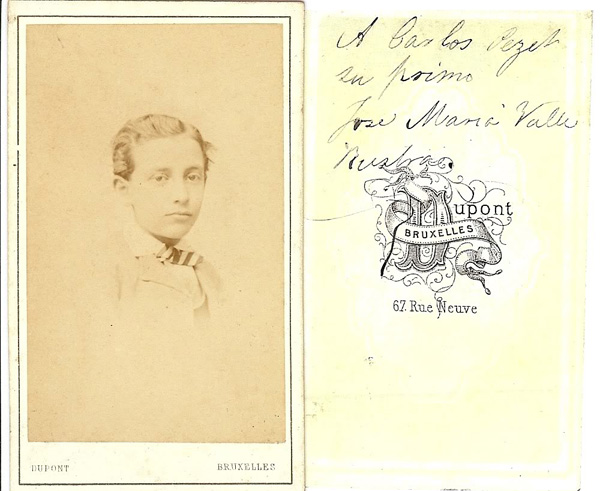 DUPONT BRUXELLES
A Carlos Pezet
su primo
José Maria Valle
Dupont
BRUXELLES
67. Rue Neuve